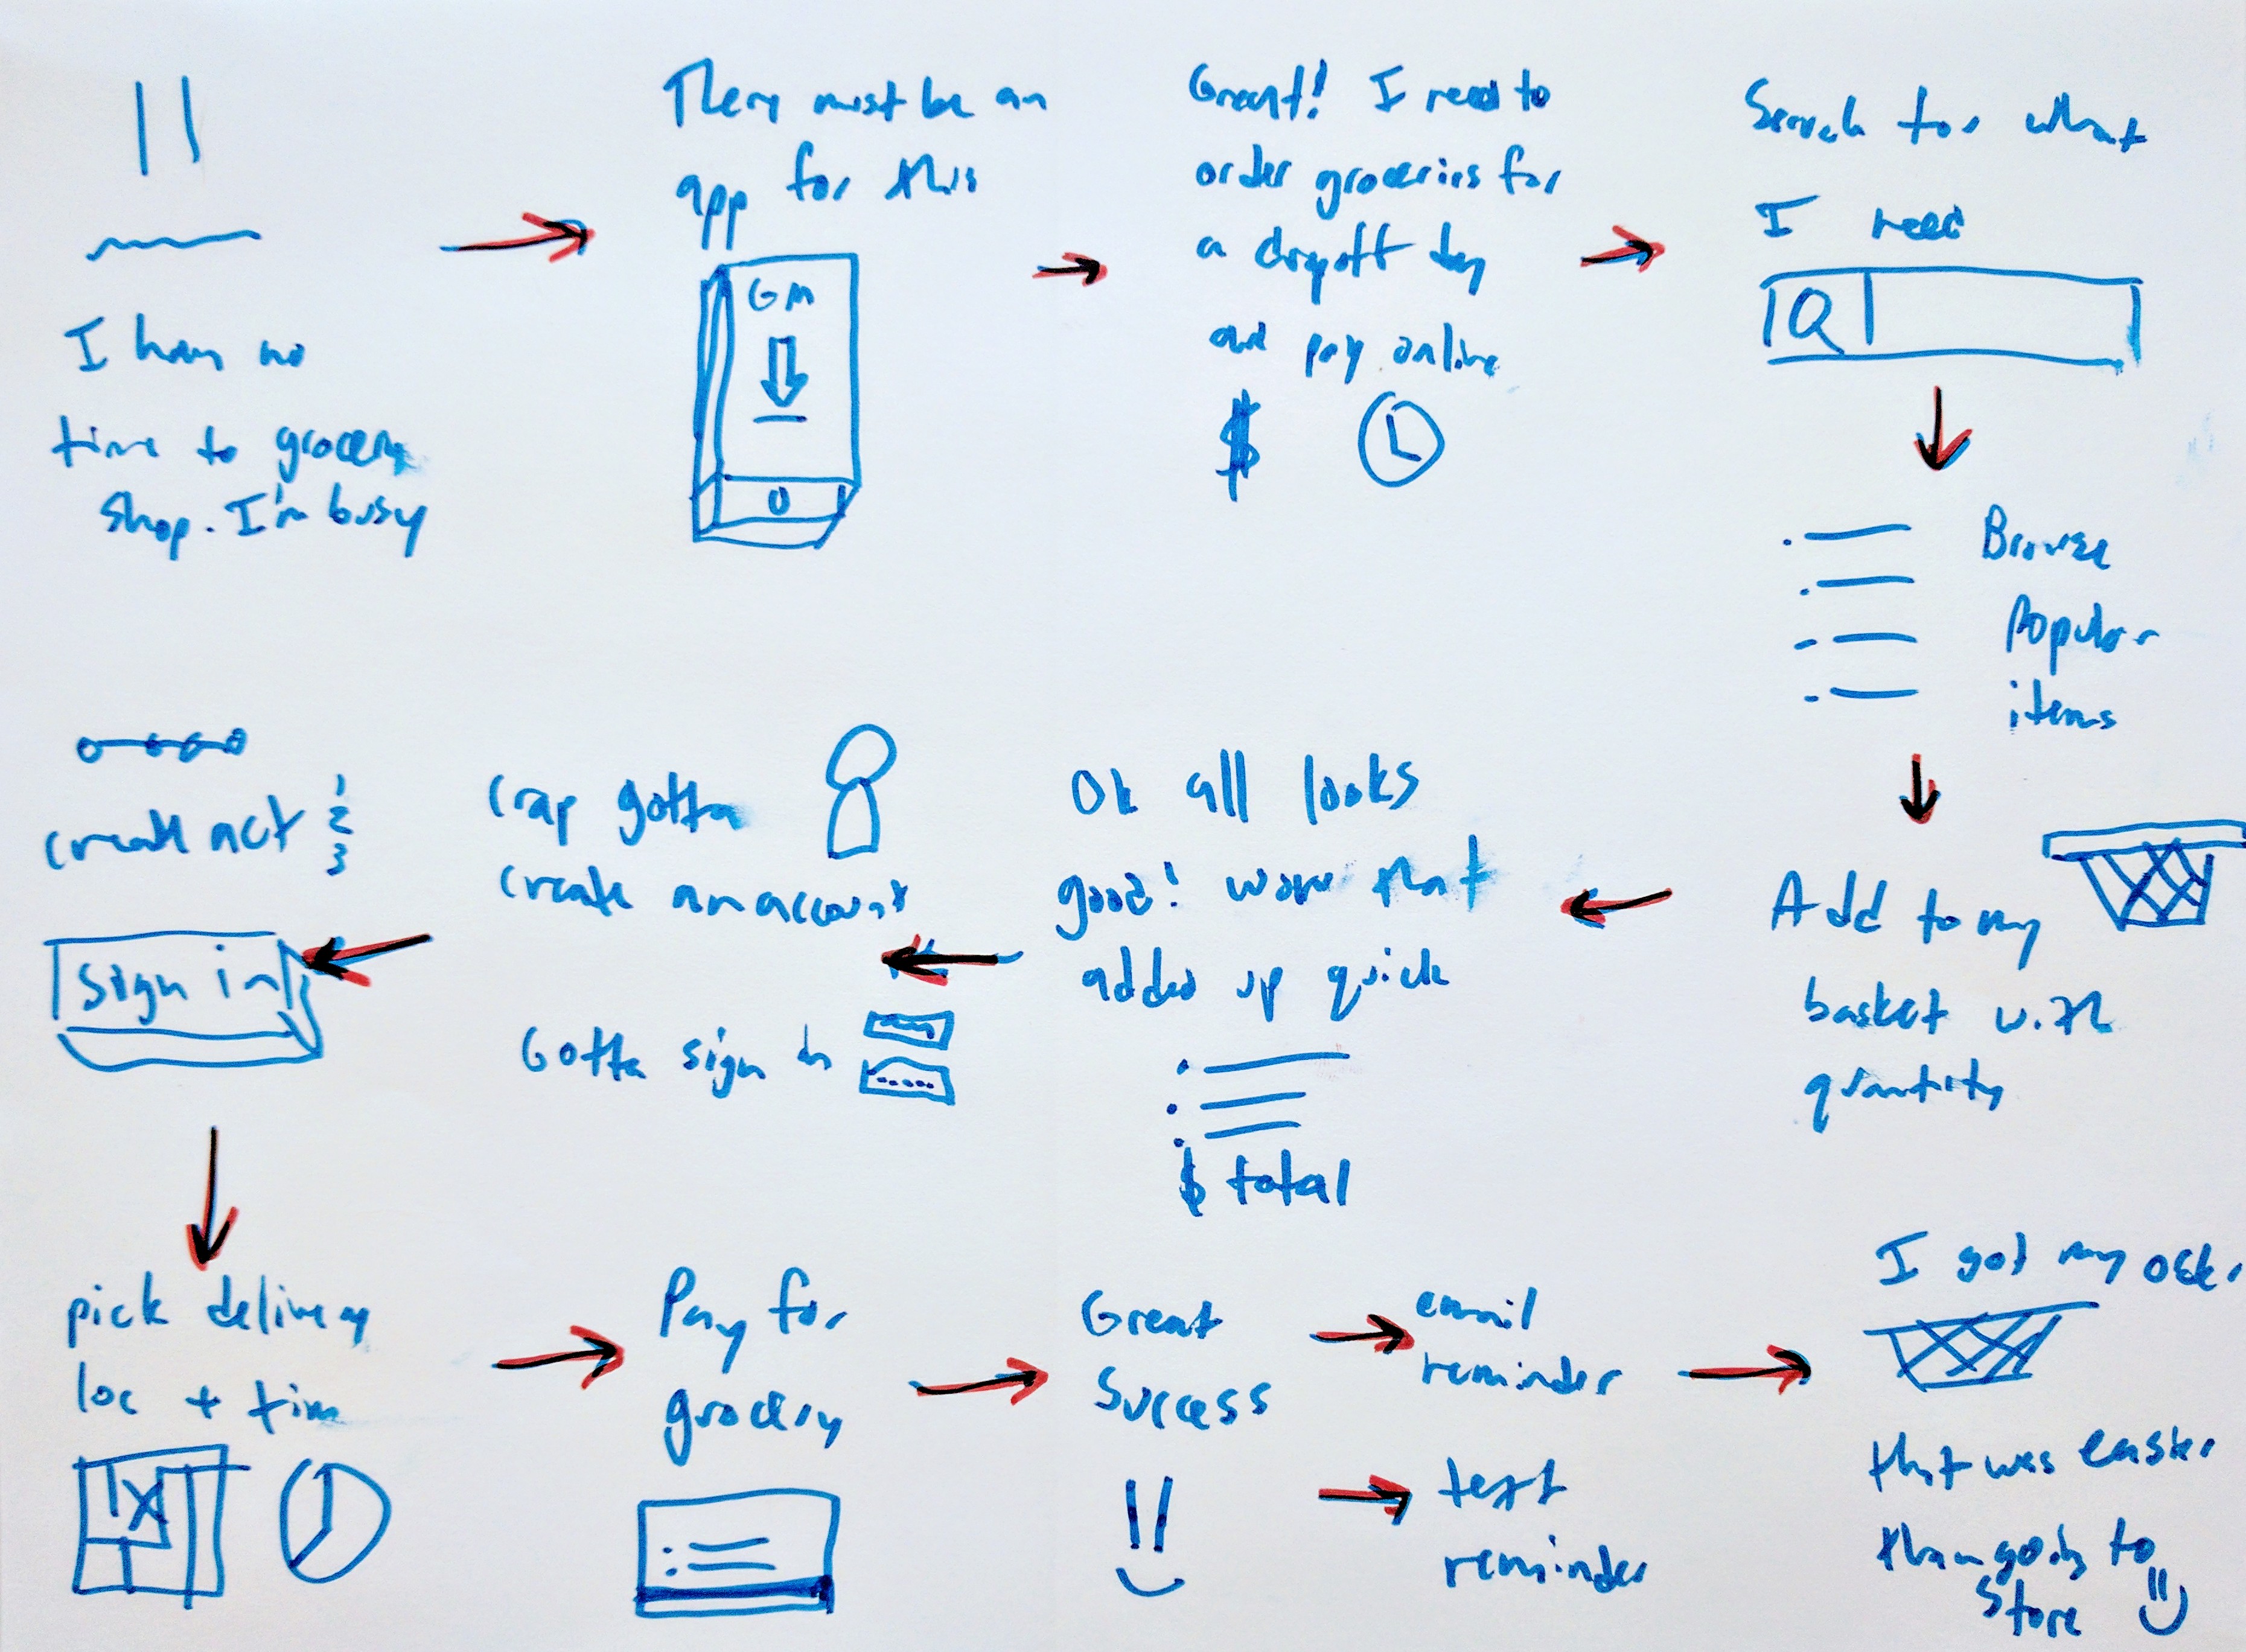 I have no
time to grocery
shop. I'm busy
There must be an
app for this
GM
Great! I need to
order groceries for
a dropoff day
and pay online
$
Search for what
I need
Browse
Popular
items
Add to my
basket with
quantity
Ok all looks
good! wow that
added up quick
$ total
Crap gotta
create an account
Gotta sign in
create act
1
2
3
Sign in
pick delivery
loc + time
X
Pay for
grocery
Great
Success
email
reminder
text
reminder
I got my order
that was easier
than going to
store